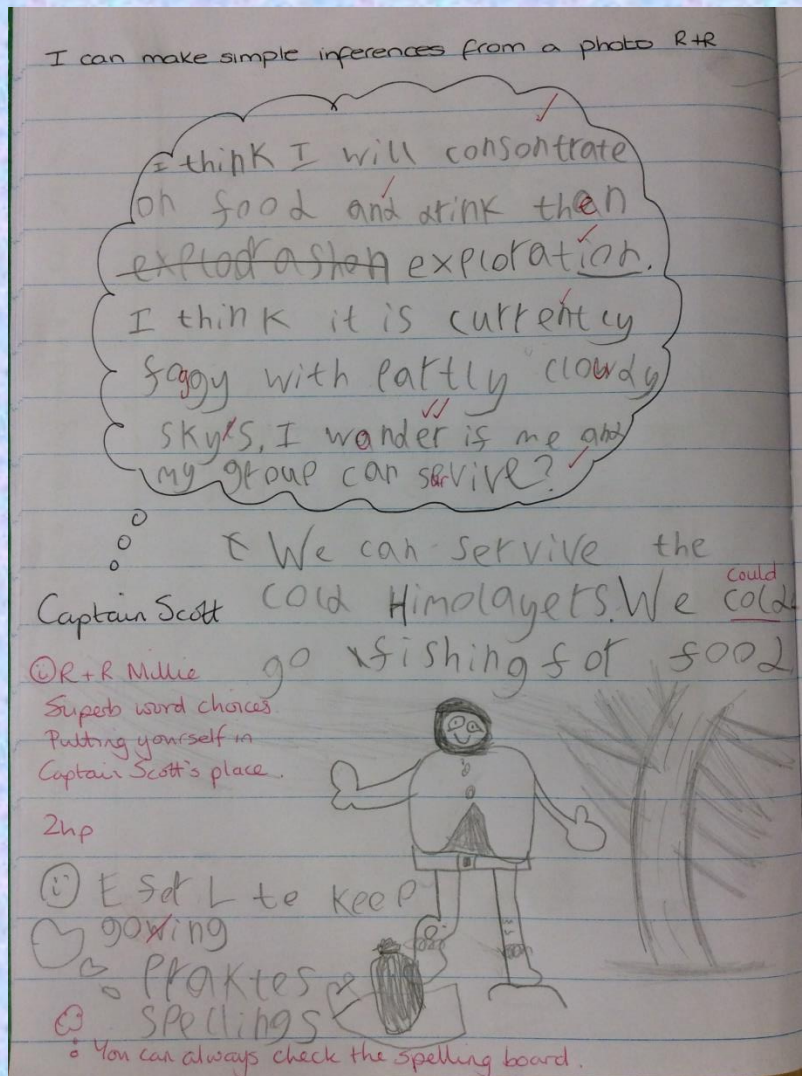 I can make simple inferences from a photo R+R
I think I will consontrate
on food and drink then
exploration.
I think it is currently
foggy with partly clowdy
skys, I wander if me and
my group can survive?
We can servive the
cold Himolayers. We cold
could
go fishing for food
Captain Scott
R+R Millie
Superb word choices.
Putting yourself in
Captain Scott's place.
2hp
to keep
going
Praktes
spellings
You can always check the spelling board.